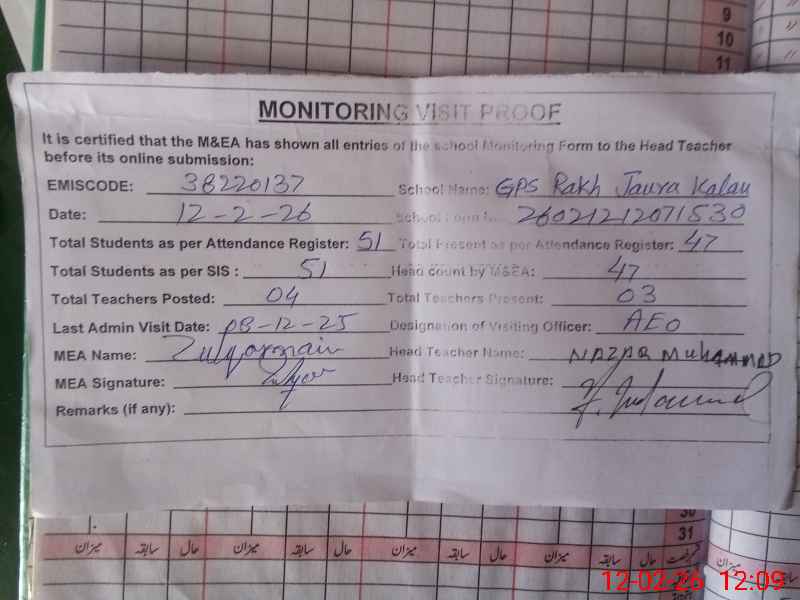 9
10
11
MONITORING VISIT PROOF
It is certified that the M&EA has shown all entries of the school Monitoring Form to the Head Teacher
before its online submission:
EMISCODE: 38220137 School Name: GPS Rakh Jaura Kalan
Date: 12-2-26 School Form No. 26021212071530
Total Students as per Attendance Register: 51 Total Present as per Attendance Register: 47
Total Students as per SIS : 51 Head count by M&EA: 47
Total Teachers Posted: 04 Total Teachers Present: 03
Last Admin Visit Date: 08-12-25 Designation of Visiting Officer: AEO
MEA Name: Zulqarnain Head Teacher Name: NAZAR MUHAMMAD
MEA Signature: Head Teacher Signature:
Remarks (if any):
30
31
میزان سابقہ حال میزان سابقہ حال میزان سابقہ حال میزان سابقہ حال میزان
سابقہ
12-02-26 12:09